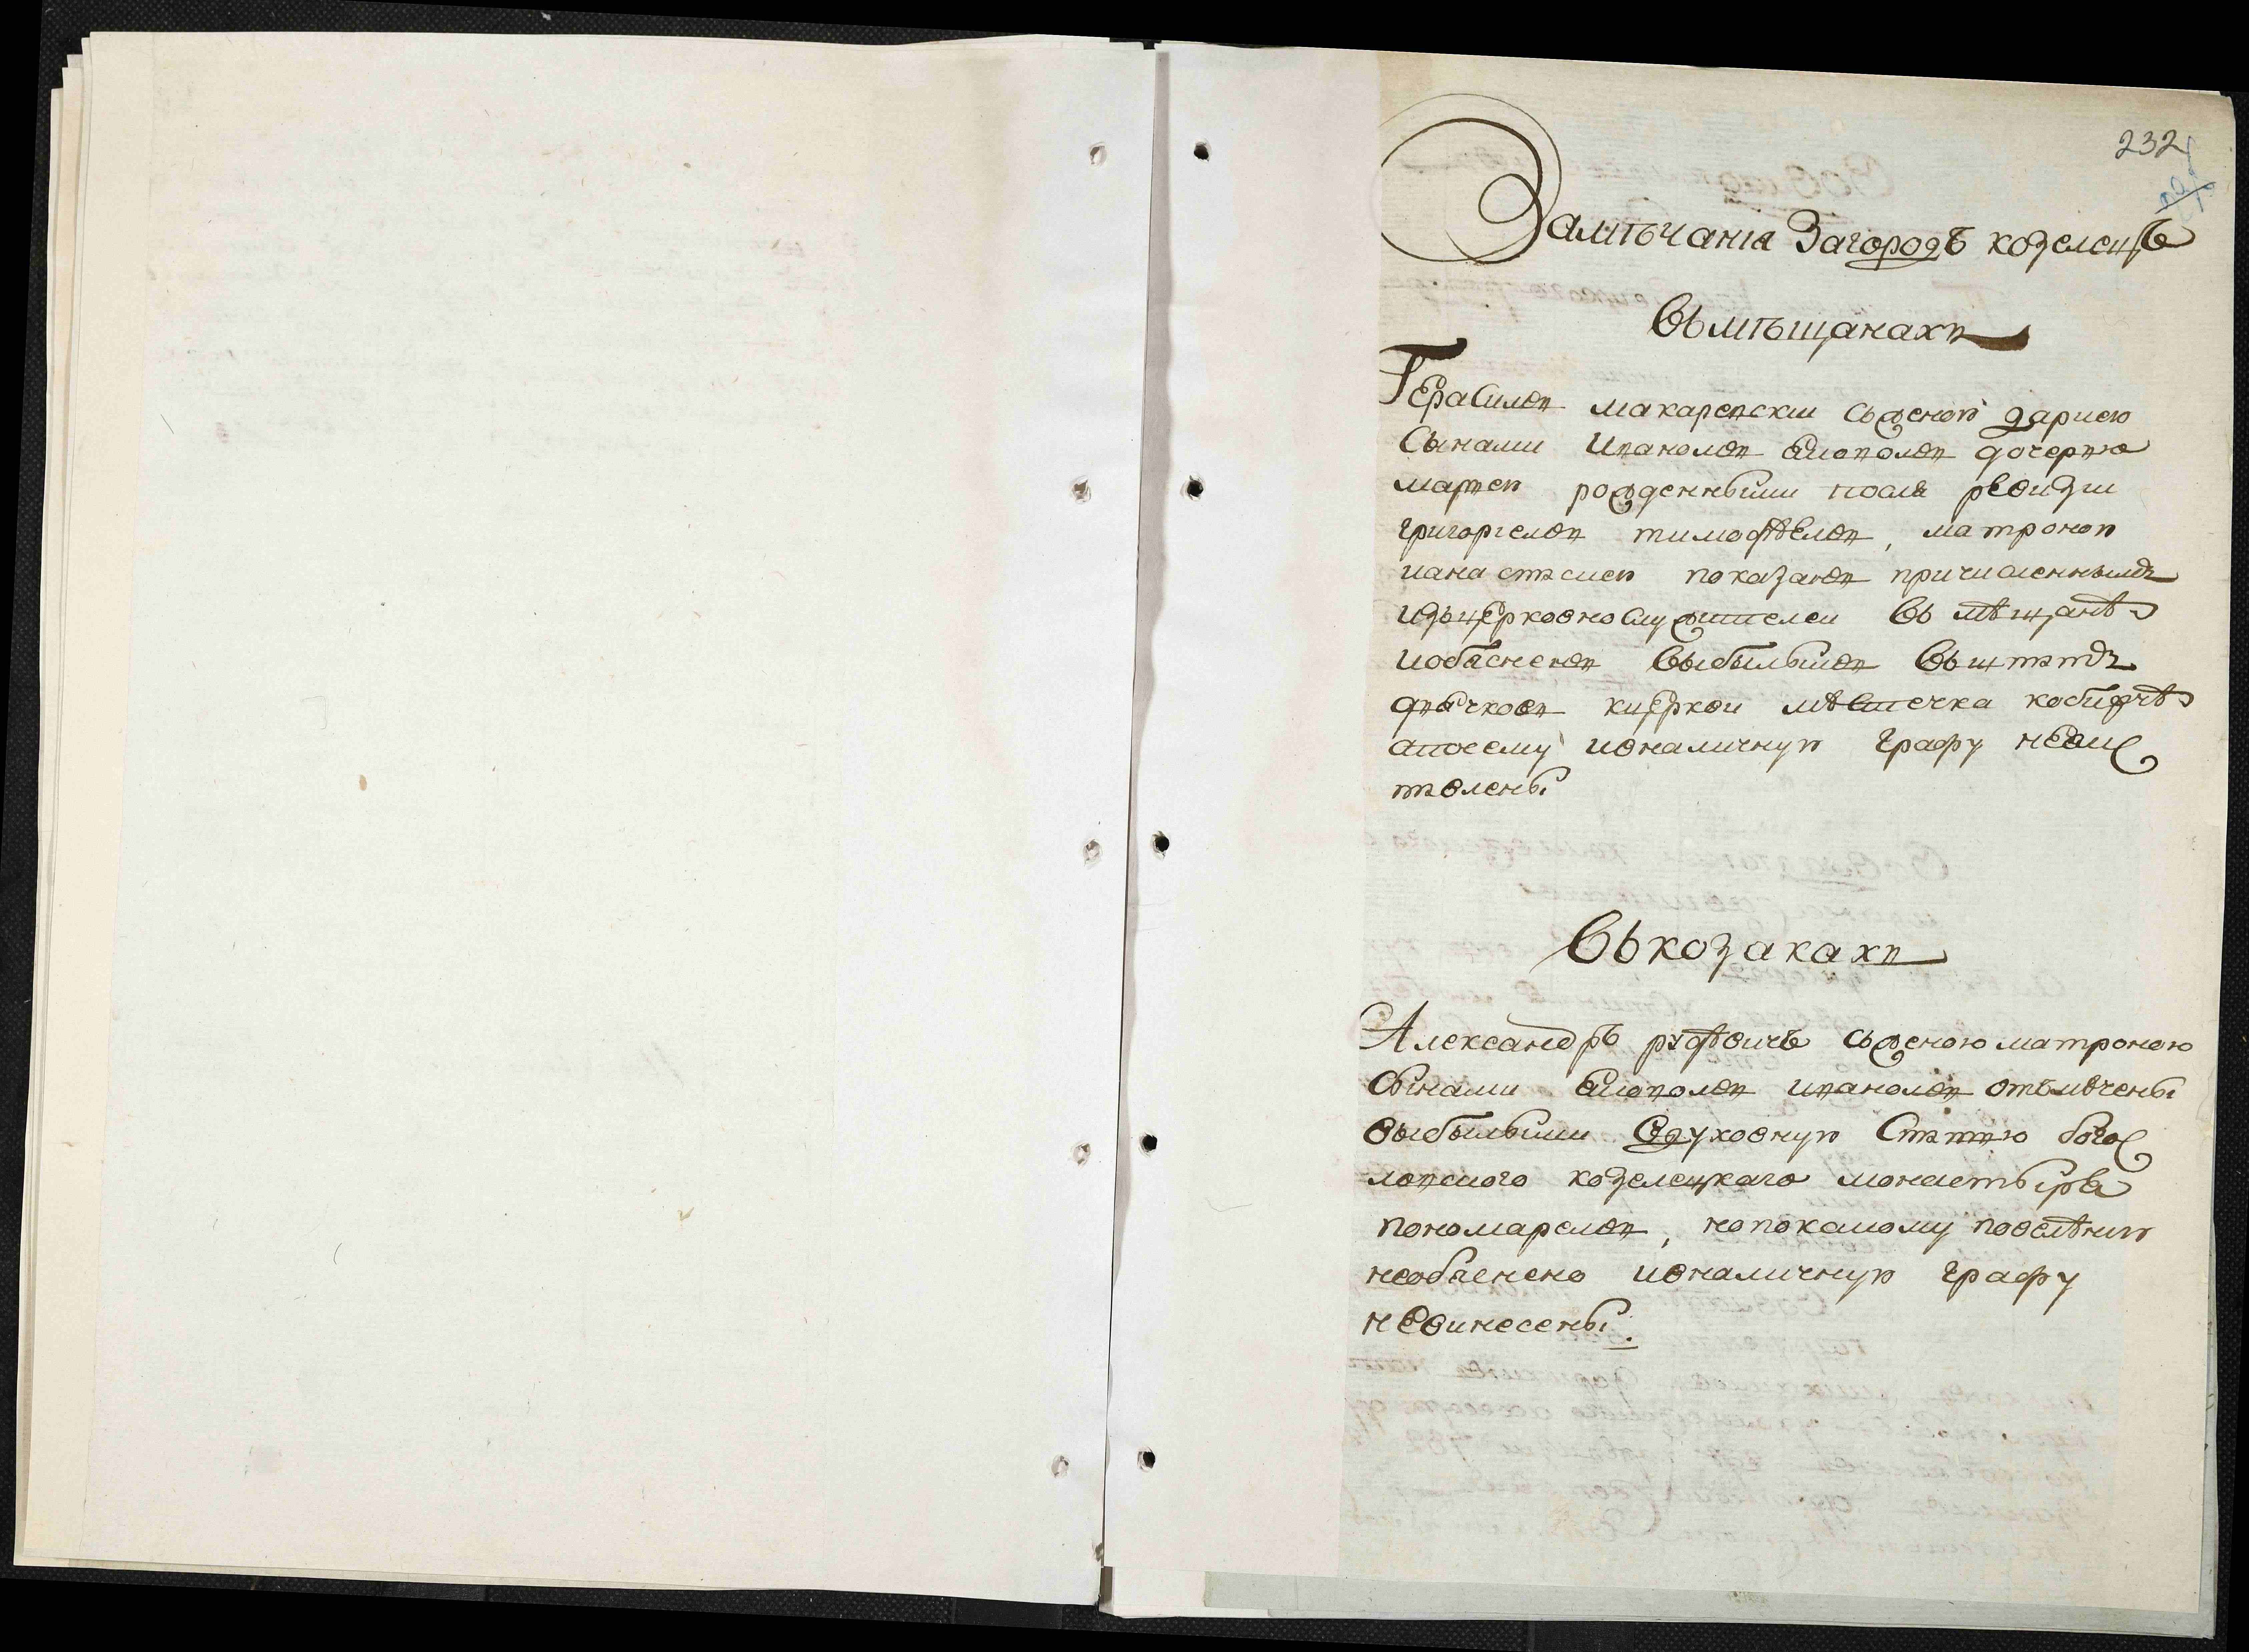 232
Замѣчанія Загородъ козелецъ
Въмѣщанахъ
Герасимъ макаревскии съженою дариею
Сынами Иваномъ Яковомъ дочерью
марѣею рожденными послѣ ревизии
григориемъ тимофѣемъ, матроною
ианастасиею показанъ причисленнымъ
изъцерковнослужителеи Въ мѣщанѣ
иобясненъ Выбывшимъ Въштатъ
дьячковъ кцеркви мѣстечка кобижчѣ
апосему ивналичную графу невнес
Александръ съженою матроною
Сынами Яковомъ иваномъ отъмѣчены
выбывшими Вдуховную Статью богос
ловского козелецкаго монастыря
пономаремъ, нопокакому повелѣнию
необяснено ивналичную графу
невнесены.